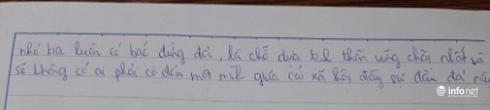 nhỏ kia luôn có bác đứng đợi, là chỗ dựa tinh thần vững chãi nhất và
sẽ không có ai phải cô đơn một mình giữa cái xã hội đầy sự dối trá này
infonet